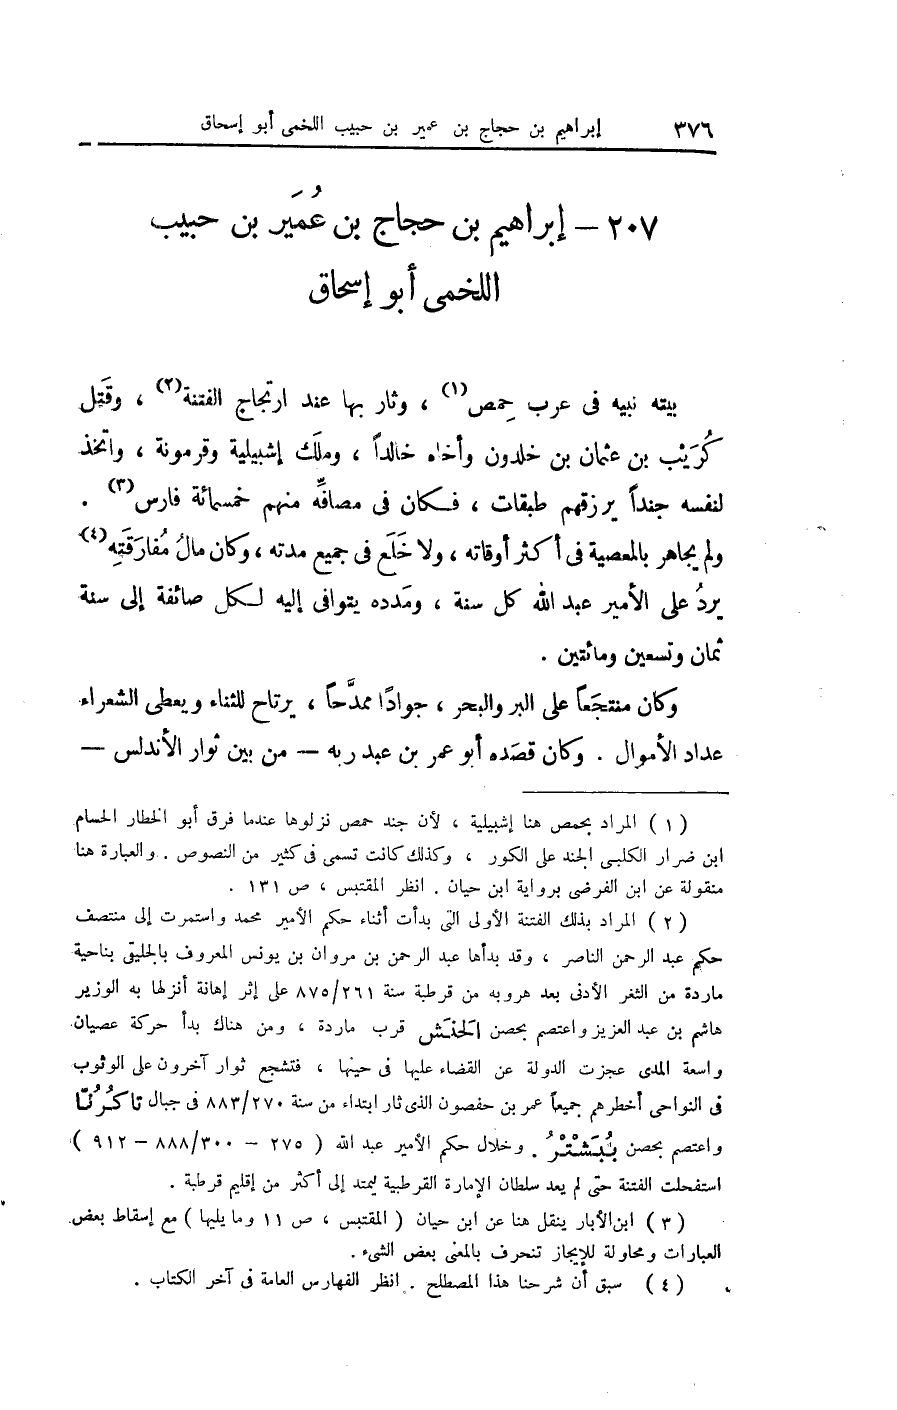 ٣٧٦ إبراهيم بن حجاج بن عمير بن حبيب اللخمى أبو إسحاق
٢٠٧ – إبراهيم بن حجاج بن عُمَير بن حبيب
اللخمى أبو إسحاق
بيته نبيه فى عرب حِمص(١) ، وثار بها عند ارتجاج الفتنة(٢) ، وقَتل
كُرَيْب بن عثمان بن خلدون وأخاه خالداً ، وملَك إشبيلية وقرمونة ، واتّخذ
لنفسه جنداً يرزقهم طبقات ، فكان فى مصافِّه منهم خمسمائة فارس(٣) .
ولم يجاهر بالمعصية فى أكثر أوقاته ، ولا خَلَع فى جميع مدته ، وكان مالُ مُفارَقَتِه(٤)
يردُ على الأمير عبد الله كل سنة ، ومَدده يتوافى إليه لكل صائفة إلى سنة
ثمان وتسعين ومائتين .
وكان منتجَعاً على البر والبحر ، جوادًا ممدَّحاً ، يرتاح للثناء ويعطى الشعراء
عداد الأموال . وكان قصَده أبو عمر بن عبد ربه — من بين ثوار الأندلس —
( ١ ) المراد بحمص هنا إشبيلية ، لأن جند حمص نزلوها عندما فرق أبو الخطار الحسام
ابن ضرار الكلبى الجند على الكور ، وكذلك كانت تسمى فى كثير من النصوص . والعبارة هنا
منقولة عن ابن الفرضى برواية ابن حيان . انظر المقتبس ، ص ١٣١ .
( ٢ ) المراد بذلك الفتنة الأولى التى بدأت أثناء حكم الأمير محمد واستمرت إلى منتصف
حكم عبد الرحمن الناصر ، وقد بدأها عبد الرحمن بن مروان بن يونس المعروف بالجليقى بناحية
ماردة من الثغر الأدنى بعد هروبه من قرطبة سنة ٨٧٥/٢٦١ على إثر إهانة أنزلها به الوزير
هاشم بن عبد العزيز واعتصم بحصن الحَنَش قرب ماردة ، ومن هناك بدأ حركة عصيان
واسعة المدى عجزت الدولة عن القضاء عليها فى حينها ، فتشجع ثوار آخرون على الوثوب
فى النواحى أخطرهم جميعاً عمر بن حفصون الذى ثار ابتداء من سنة ٨٨٣/٢٧٠ فى جبال تاكُرُنّا
واعتصم بحصن بُبَشْتْرُ . وخلال حكم الأمير عبد الله ( ٢٧٥ – ٨٨٨/٣٠٠ – ٩١٢ )
استفحلت الفتنة حتى لم يعد سلطان الإمارة القرطبية ليمتد إلى أكثر من إقليم قرطبة .
( ٣ ) ابن الأبار ينقل هنا عن ابن حيان ( المقتبس ، ص ١١ وما يليها ) مع إسقاط بعض
العبارات ومحاولة للإيجاز تنحرف بالمعنى بعض الشىء .
( ٤ ) سبق أن شرحنا هذا المصطلح . انظر الفهارس العامة فى آخر الكتاب .